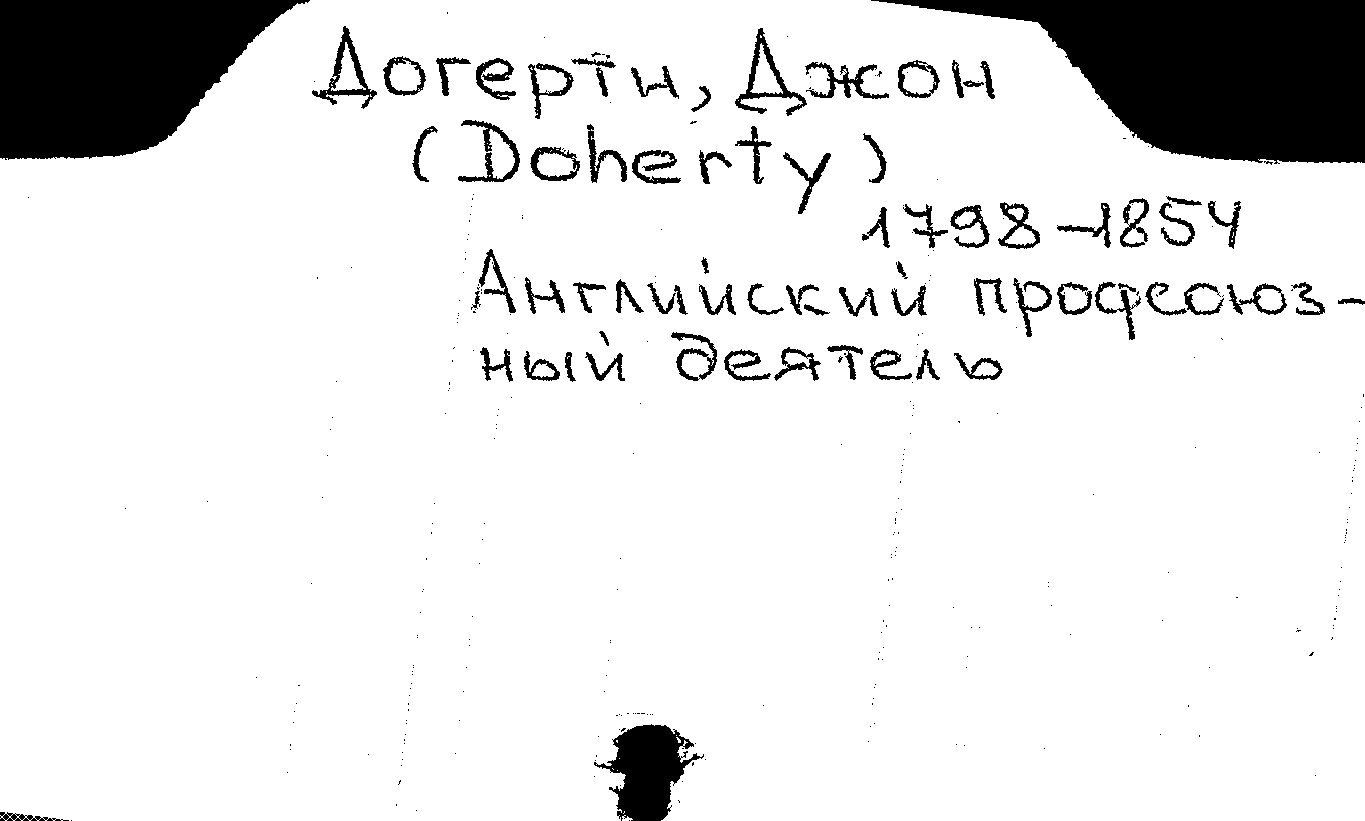 Догерти, Джон
(Doherty)
1798-1854
Английский профсоюз-
ный деятель